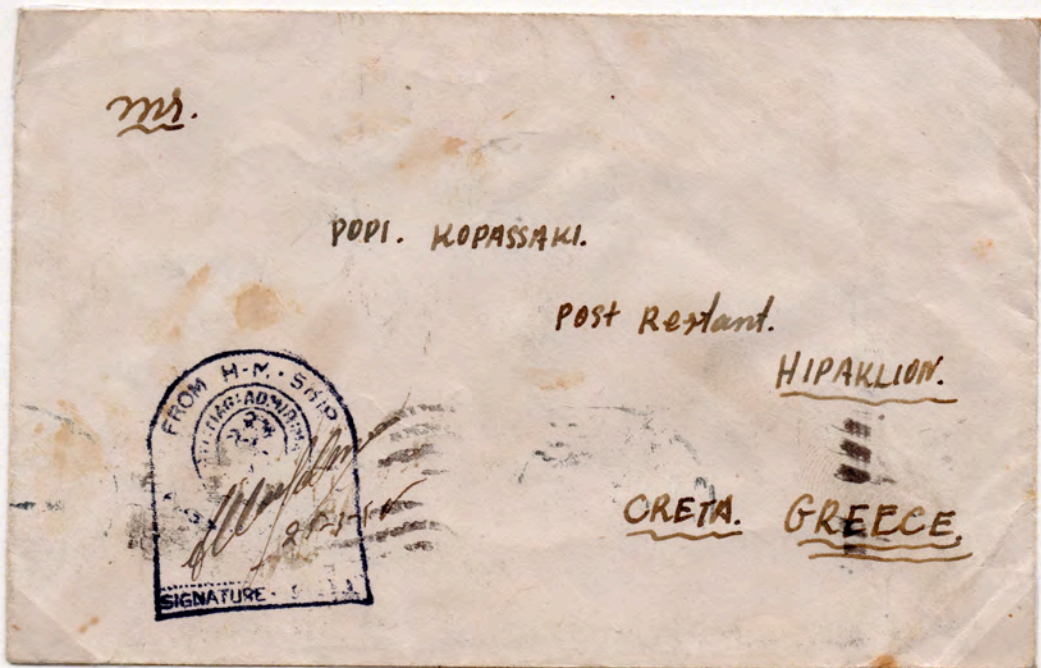 Mr.
POPI. KOPASSAKI.
Post Restant.
HIPAKLION.
CRETA. GREECE.
FROM H·M· SHIP
SIGNATURE